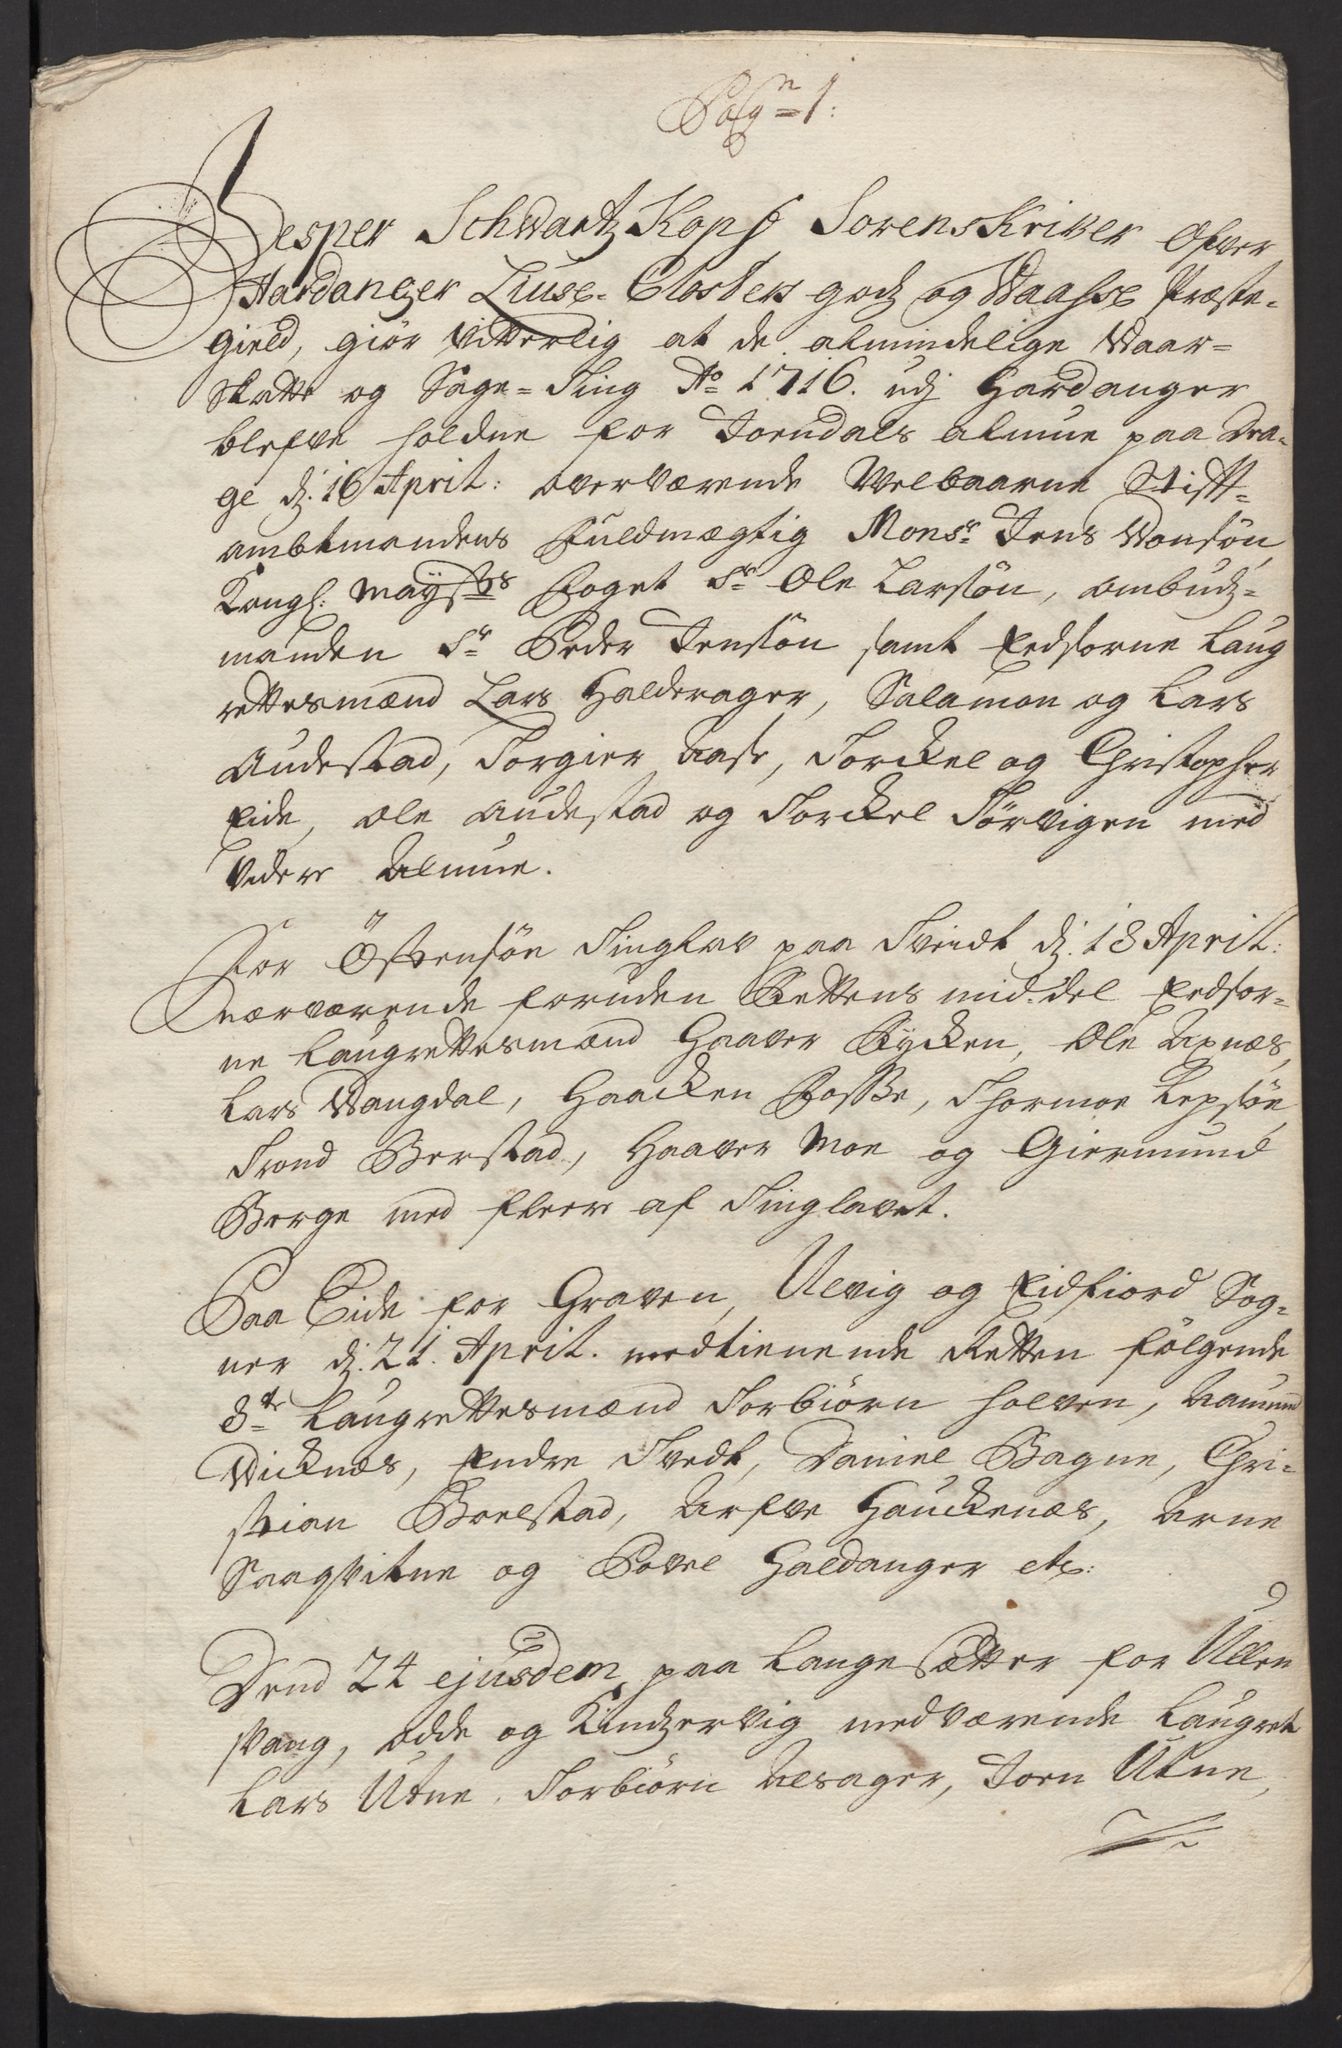 Pagn 1:
Jesper Schwartz Kopf Sorenskriver Ofver
Hardanger Liuse-Closters godz og Waasse Præste-
gield, giør Vitterlig at de almindelige Waar-
Skatte og Sage-Ting Ao 1716. udj Hardanger
blefve holdne for Joendals almue paa Dra-
ge dj: 16 April: overværende Welbaarne Stift-
ambtmandens Fuldmægtig Monsr: Jens Wonsøn,
Kongl: Mayts Foget Sr Ole Larsøn, Ombudz-
manden Sr Peder Jensøn samt Eedsorne Laug
rettesmænd Lars Halderager, Salamon og Lars
Audestad, Torgier Aase, Torckel og Christopher
Eide, Ole Audestad og Torckel Tørvigen med
videre Almue.
For Østensøe Tinglav paa Tveidt dj: 18 April:
nærværende foruden Rettens middel Eedsor-
ne Laugrettesmænd Haaver Rycken, Ole Axnæs,
Lars Wangdal, Haacken Fosse, Thormoe Lepsøe,
Trond Berstad, Haaver Moe og Giermund
Berge med fleere af Tinglavet.
Paa Eide for Graven, Ulvig og Eidfiord Sog-
ner dj: 21. April. medtienende Retten følgende
8te Laugrettesmænd Torbiørn Holven, Aamund
Wicknæs, Endre Tvedt, Daniel Bagne, Chri-
stian Boelstad, Arfve Hauckenæs, Arne
Saaqvitne og Povel Haldanger etc:
Dend 24 ejusdem paa Lange Sætter for Ullen
svang, Odde og Kindzervig medværende Laugret
Lars Utne, Torbiørn Alsager, Joen Utne,